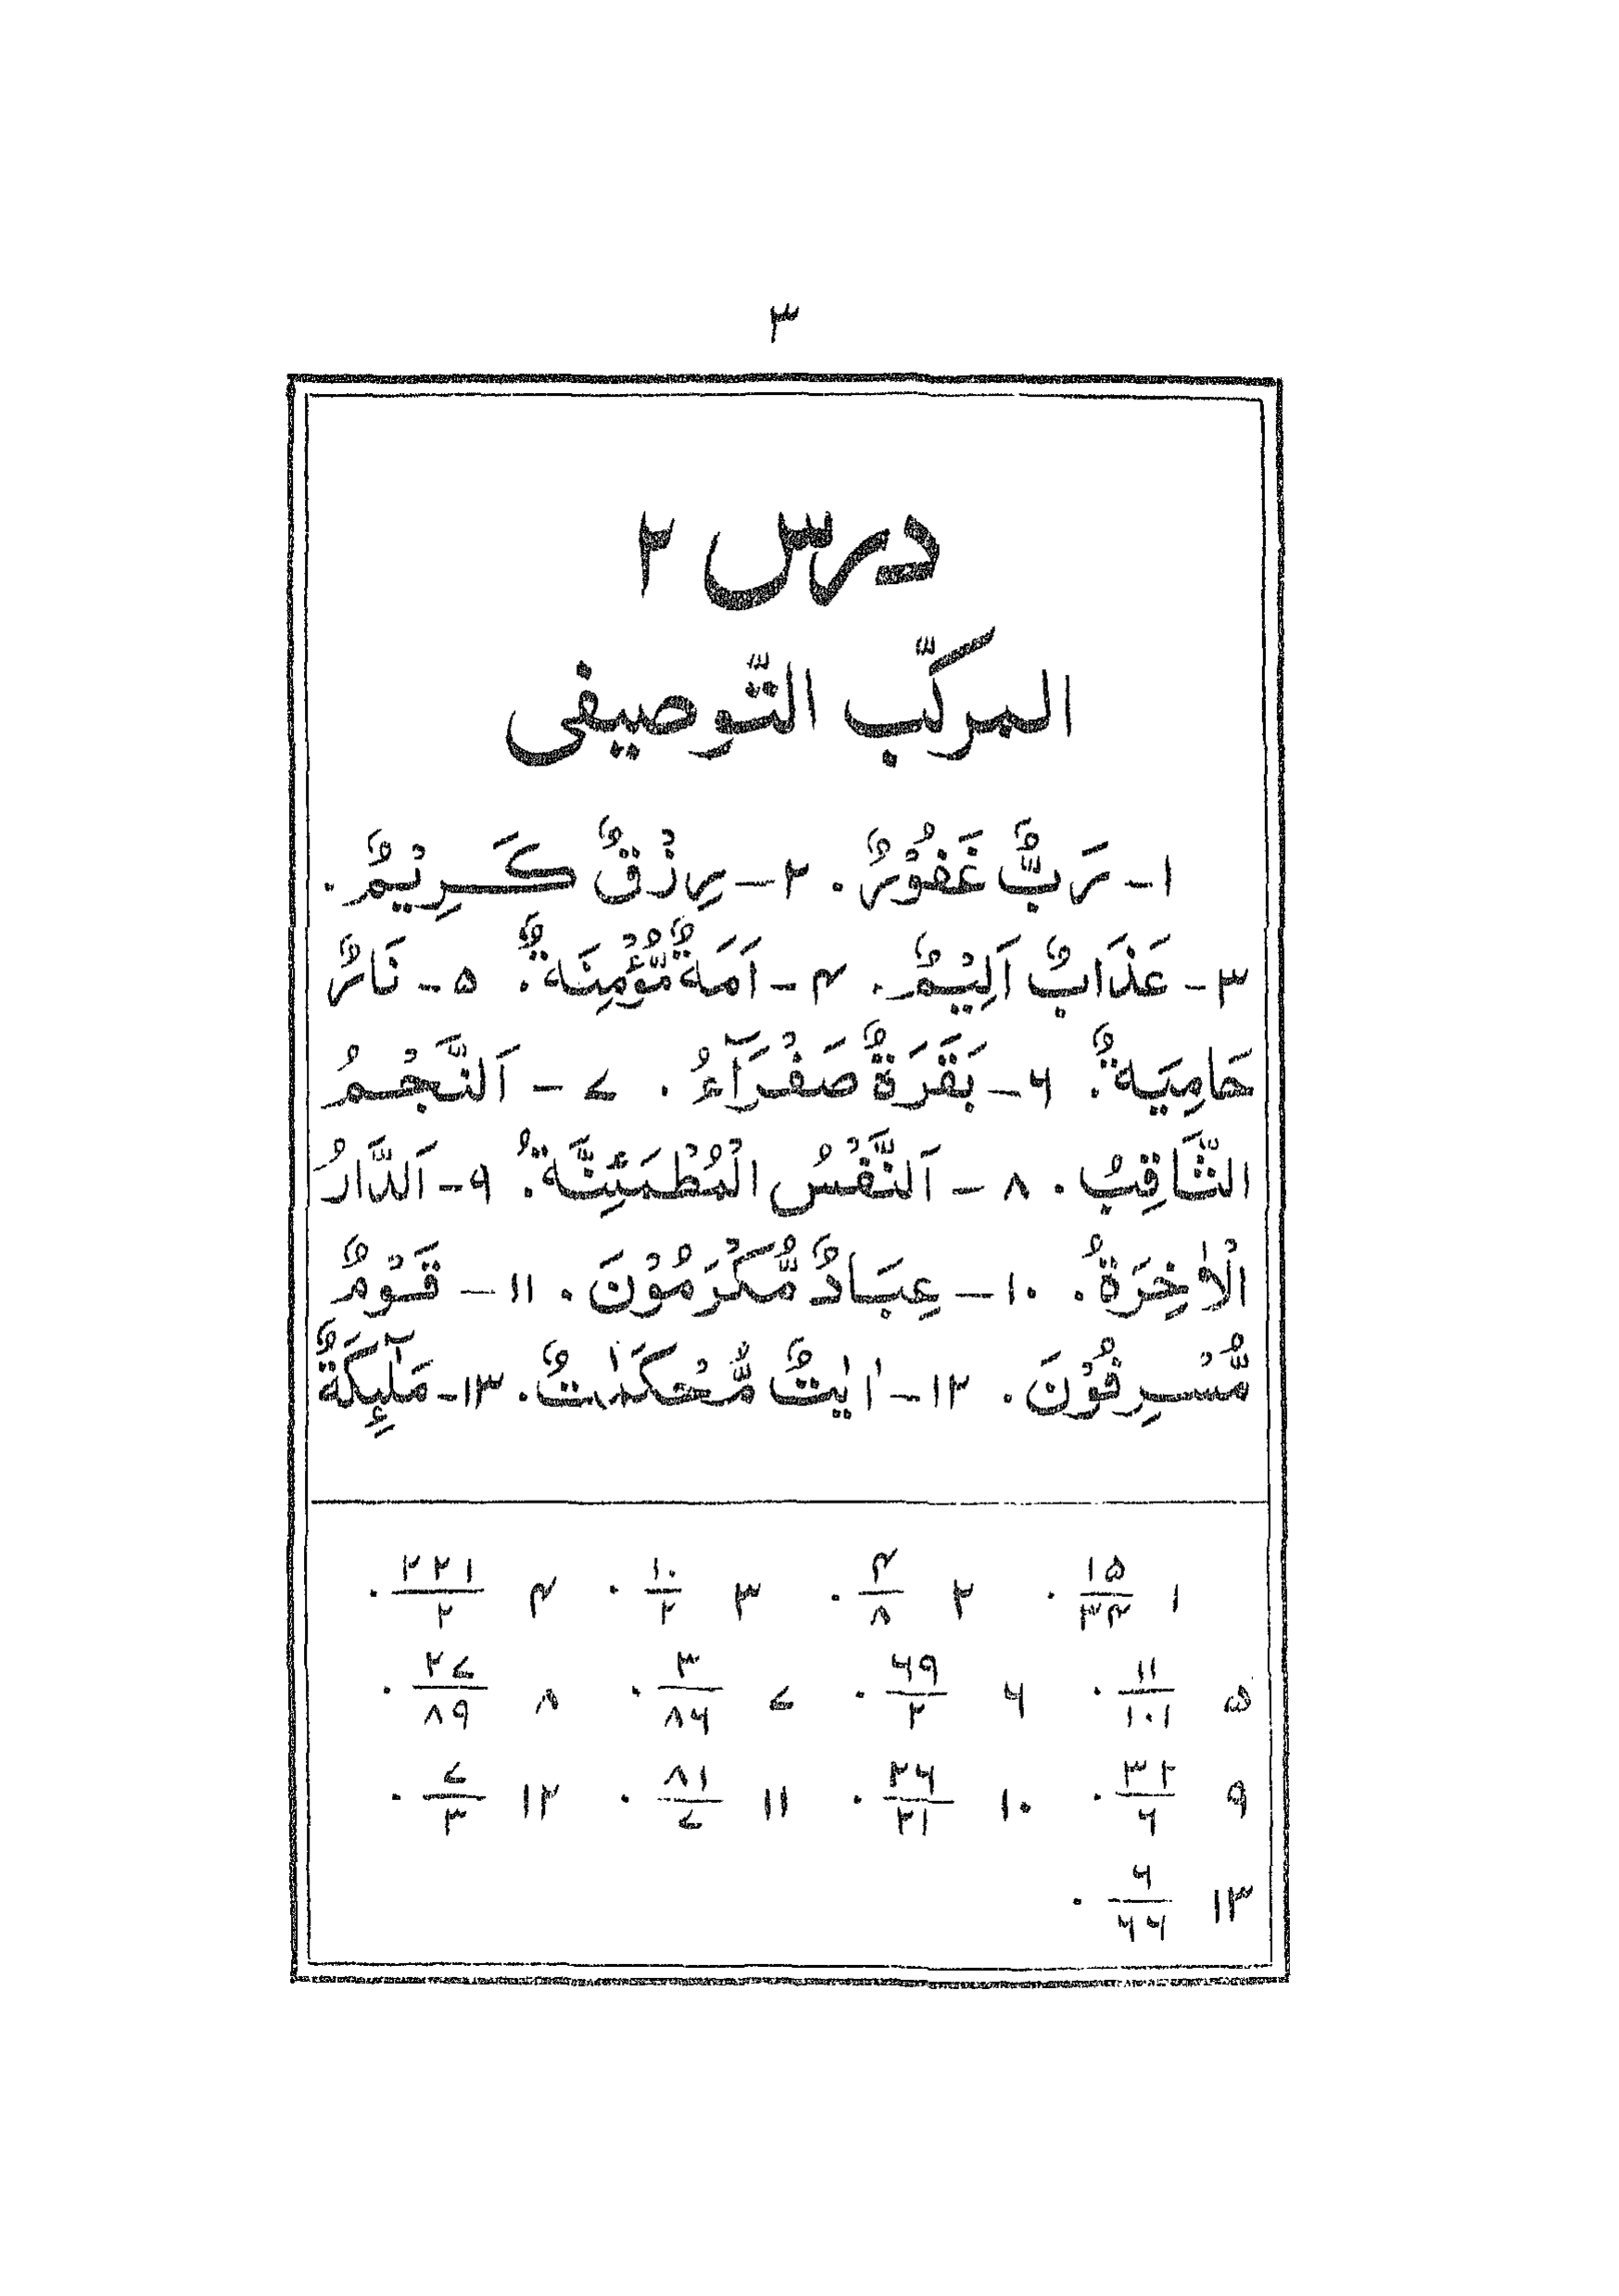 ۳
درس ۲
المركّب التّوصیفی
۱- رَبٌّ غَفُوْرٌ. ۲- رِزْقٌ كَرِيْمٌ.
۳- عَذَابٌ اَلِيْمٌ. ۴- اَمَةٌ مُّؤْمِنَةٌ. ۵- نَارٌ
حَامِيَةٌ. ۶- بَقَرَةٌ صَفْرَآءُ. ۷- اَلنَّجْمُ
الثَّاقِبُ. ۸- اَلنَّفْسُ الْمُطْمَئِنَّةُ. ۹- اَلدَّارُ
الْاٰخِرَةُ. ۱۰- عِبَادٌ مُّكْرَمُوْنَ. ۱۱- قَوْمٌ
مُّسْرِفُوْنَ. ۱۲- اٰيٰتٌ مُّحْكَمٰتٌ. ۱۳- مَلٰٓئِكَةٌ
۱ ۱۵/۳۴. ۲ ۴/۸. ۳ ۱۰/۲. ۴ ۲۲۱/۲.
۵ ۱۱/۱۰۱. ۶ ۶۹/۲. ۷ ۳/۸۶. ۸ ۲۷/۸۹.
۹ ۳۲/۶. ۱۰ ۲۶/۲۱. ۱۱ ۸۱/۷. ۱۲ ۷/۳.
۱۳ ۶/۶۶.